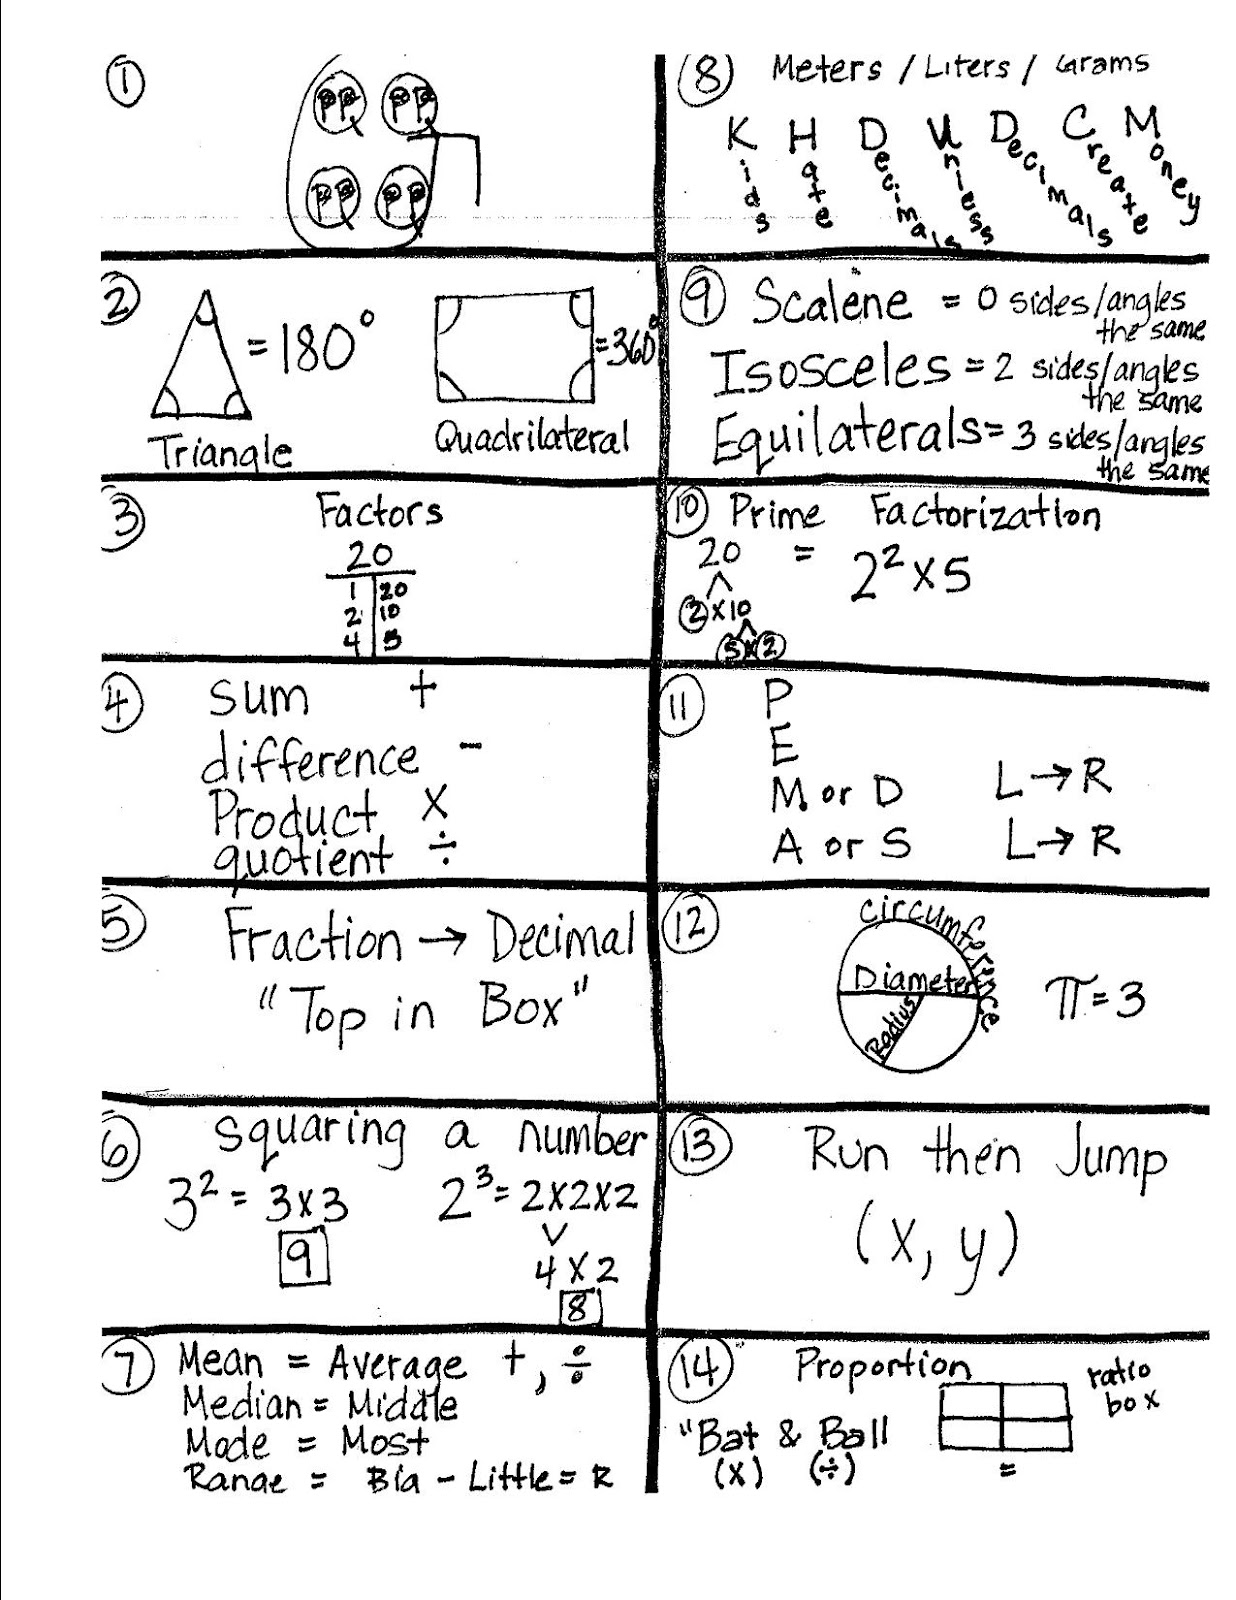 1
PQ PQ
PQ PQ
2
= 180°
= 360°
Triangle
Quadrilateral
3 Factors
20
1 20
2 10
4 5
4 Sum +
difference -
Product x
quotient ÷
5 Fraction → Decimal
"Top in Box"
6 Squaring a number
3² = 3x3
9
2³ = 2x2x2
4 x 2
8
7 Mean = Average +, ÷
Median = Middle
Mode = Most
Range = Big - Little = R
8 Meters / Liters / Grams
Kids Hate Decimals Unless Decimals Create Money
9 Scalene = 0 sides/angles
the same
Isosceles = 2 sides/angles
the same
Equilaterals = 3 sides/angles
the same
10 Prime Factorization
20 = 2² x 5
2 x 10
5 x 2
11 P
E
M or D L → R
A or S L → R
12 Circumference
Diameter
Radius
π = 3
13 Run then Jump
(x, y)
14 Proportion
ratio
box
"Bat & Ball
(x) (÷)
=